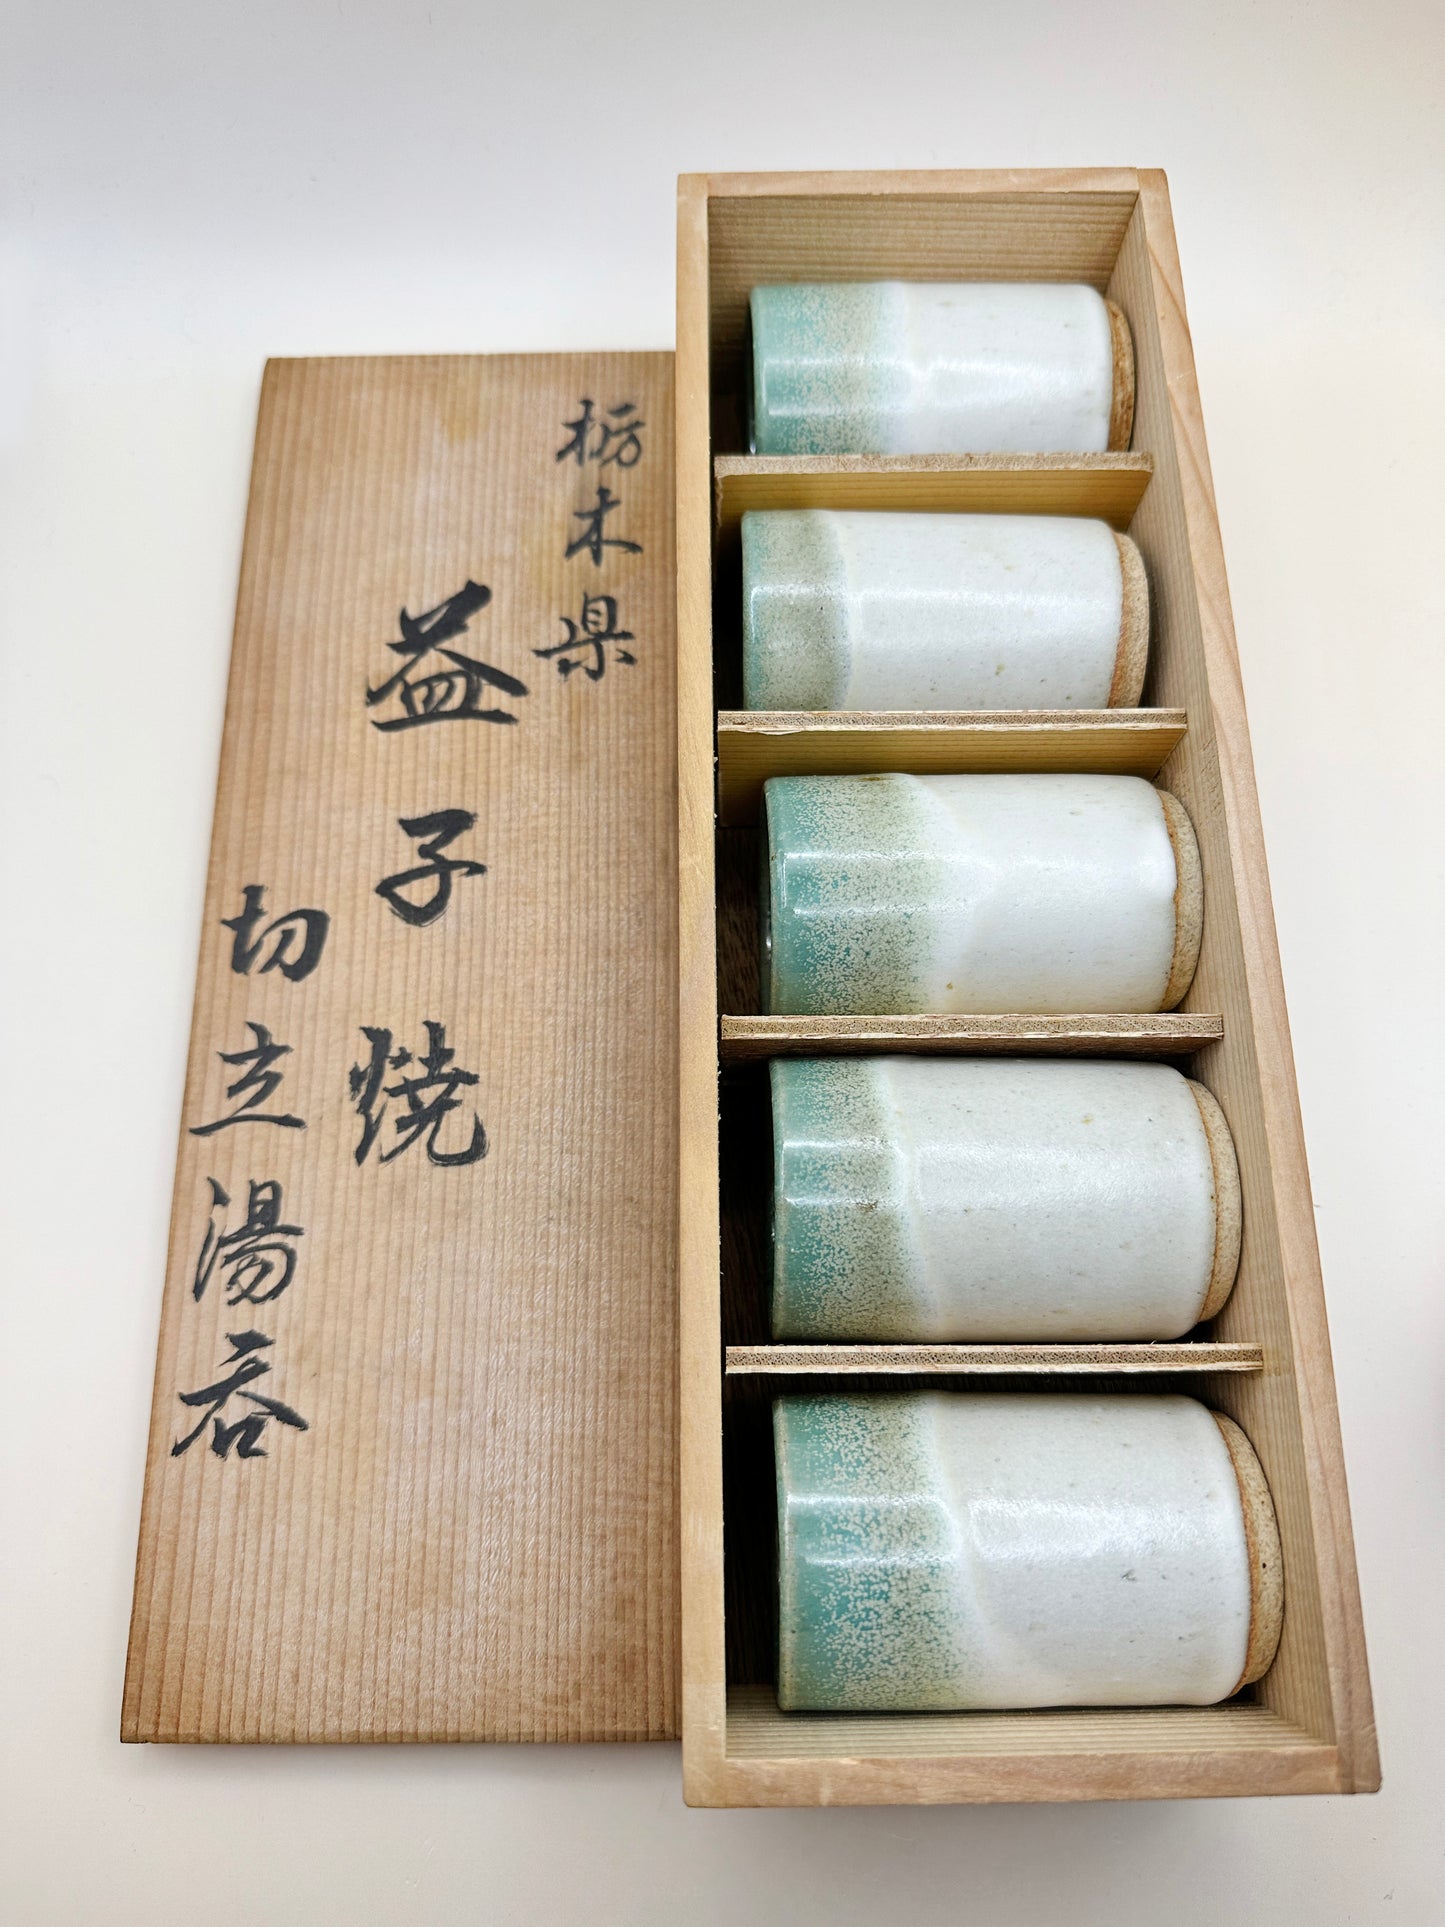 栃木県
益子焼
切立湯呑